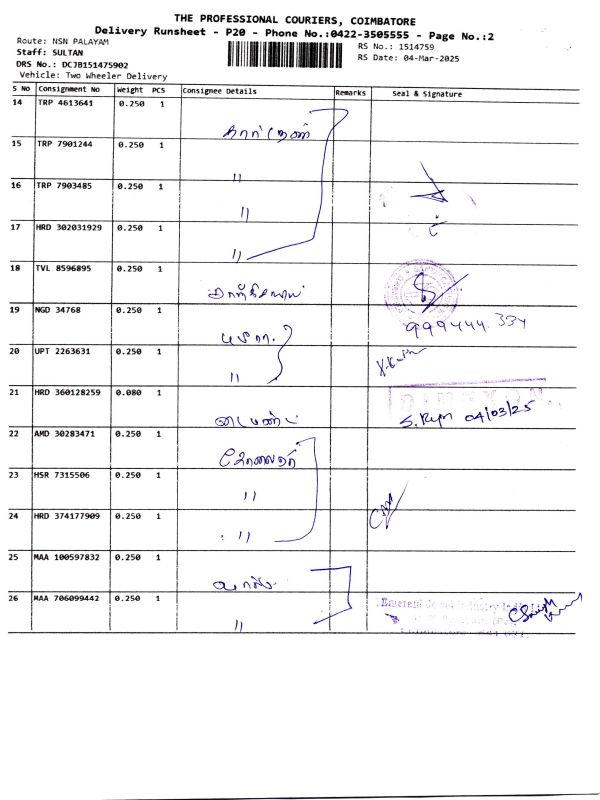 THE PROFESSIONAL COURIERS, COIMBATORE
Delivery Runsheet - P20 - Phone No.:0422-3505555 - Page No.:2
Route: NSN PALAYAM
Staff: SULTAN
DRS No.: DCJB151475902
Vehicle: Two Wheeler Delivery
RS No.: 1514759
RS Date: 04-Mar-2025
S No Consignment No Weight PCS Consignee Details Remarks Seal & Signature
14 TRP 4613641 0.250 1
15 TRP 7901244 0.250 1
"
16 TRP 7903485 0.250 1
"
17 HRD 302031929 0.250 1
"
18 TVL 8596895 0.250 1
19 NGD 34768 0.250 1
999444 334
20 UPT 2263631 0.250 1
"
21 HRD 360128259 0.080 1
04/03/25
22 AMD 30283471 0.250 1
23 HSR 7315506 0.250 1
"
24 HRD 374177909 0.250 1
"
25 MAA 100597832 0.250 1
26 MAA 706099442 0.250 1
"